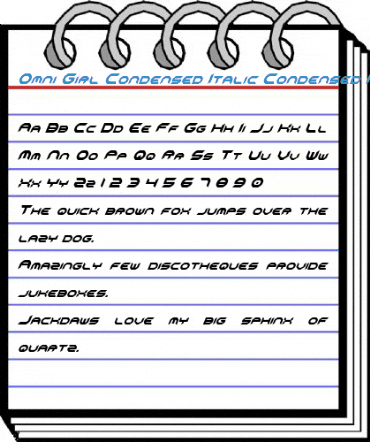 Omni Girl Condensed Italic Condensed
Aa Bb Cc Dd Ee Ff Gg Hh Ii Jj Kk Ll
Mm Nn Oo Pp Qq Rr Ss Tt Uu Vv Ww
Xx Yy Zz 1 2 3 4 5 6 7 8 9 0
The quick brown fox jumps over the
lazy dog.
Amazingly few discotheques provide
jukeboxes.
Jackdaws love my big sphinx of
quartz.